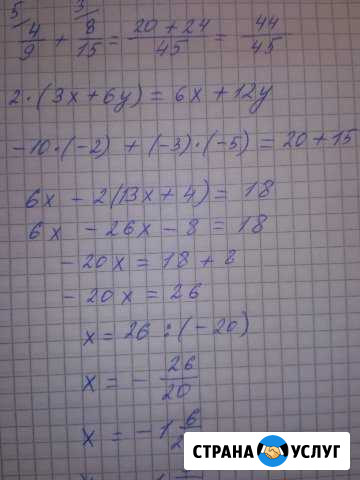 5/ 4/9 + 3/ 8/15 = (20 + 24)/45 = 44/45
2 · (3x + 6y) = 6x + 12y
-10 · (-2) + (-3) · (-5) = 20 + 15
6x - 2(13x + 4) = 18
6x - 26x - 8 = 18
-20x = 18 + 8
-20x = 26
x = 26 : (-20)
x = - 26/20
x = -1 6/2
СТРАНА УСЛУГ